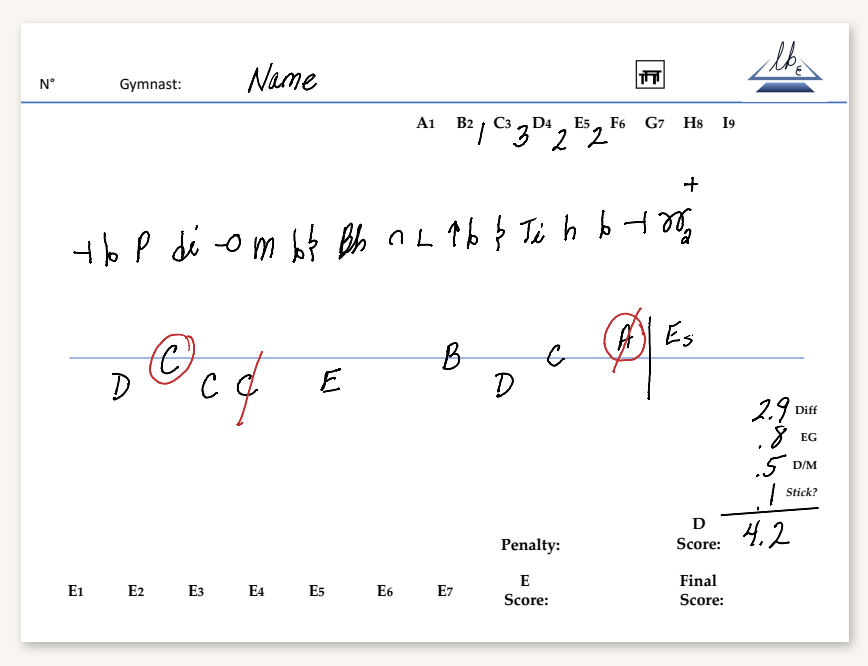 N° Gymnast: Name lbE
A1 B2 1 C3 3 D4 2 E5 2 F6 G7 H8 I9
+
P di m Bh n L ↑ b Ti h b
D C C C E B D C A Es
2.9 Diff
.8 EG
.5 D/M
.1 Stick?
Penalty: D Score: 4.2
E1 E2 E3 E4 E5 E6 E7 E Score: Final Score: